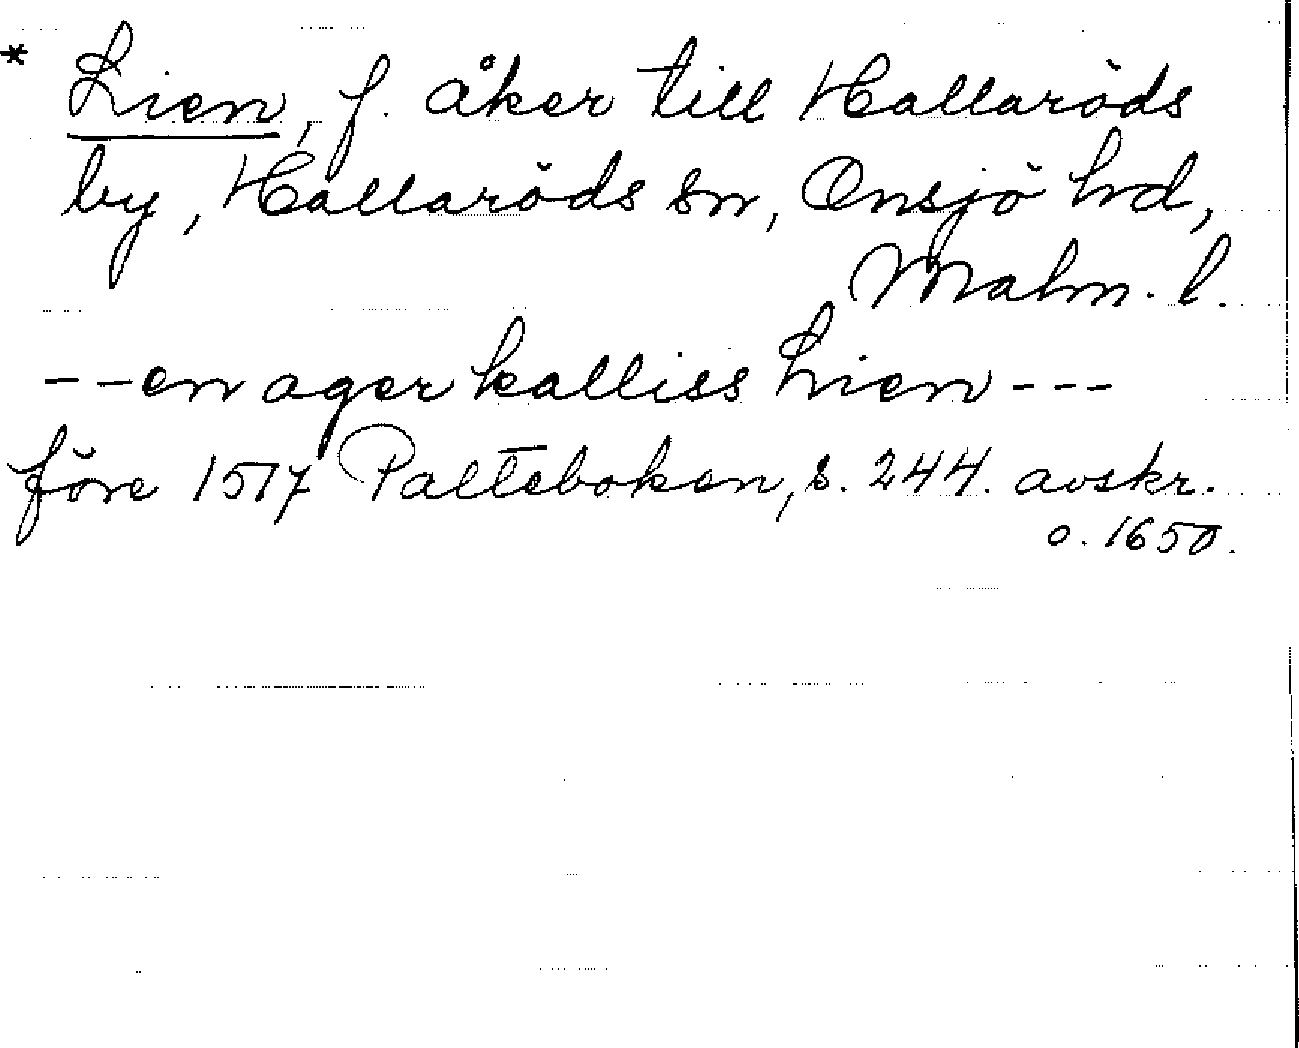 * Lien, f. åker till Hallaröds
by, Hallaröds sn, Onsjö hd,
Malm. l.
--en ager kalliss Lien ---
före 1517 Palteboken, s. 244. avskr.
o. 1650.